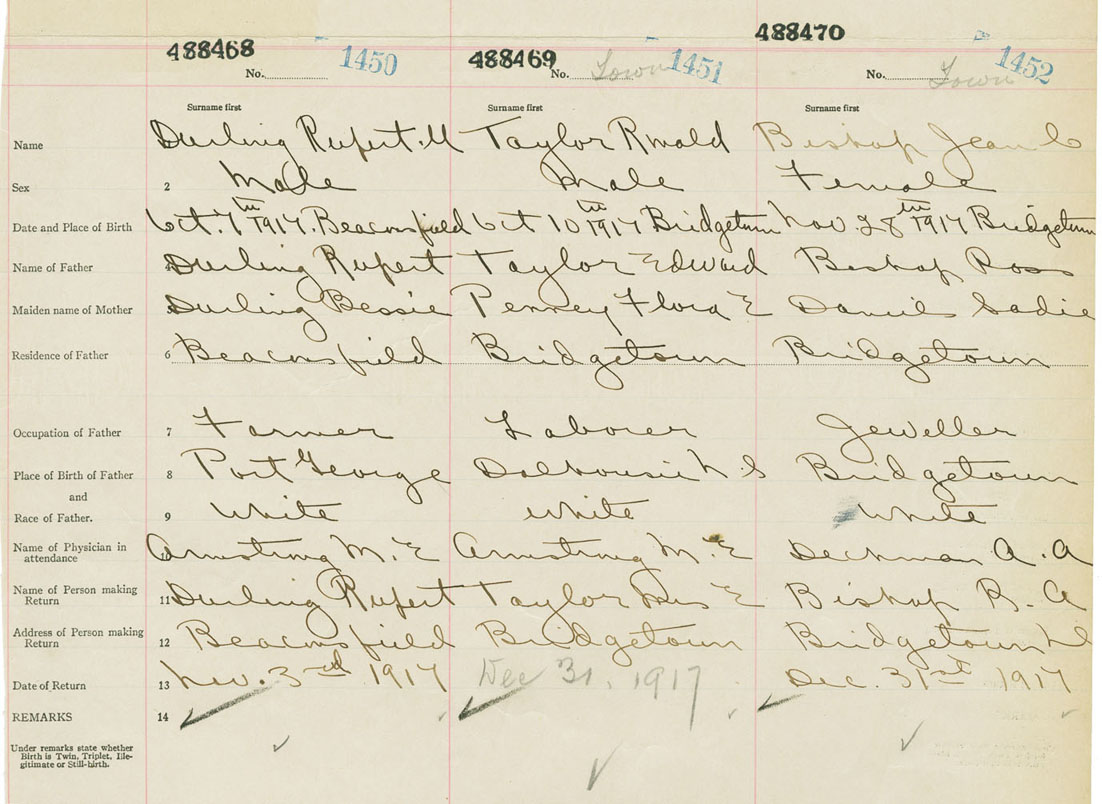 488468 488469 488470
No. 1450 No. Town 1451 No. Town 1452
Surname first Surname first Surname first
Name Durling Rupert M Taylor Ronald Bishop Jean C
Sex 2 Male Male Female
Date and Place of Birth Oct. 7th 1917. Beaconsfield Oct 10th 1917 Bridgetown Nov. 28th 1917 Bridgetown
Name of Father Durling Rupert Taylor Edward Bishop Ross
Maiden name of Mother Durling Bessie Penney Flora E Daniels Sadie
Residence of Father 6 Beaconsfield Bridgetown Bridgetown
Occupation of Father 7 Farmer Laborer Jeweller
Place of Birth of Father 8 Port George Dalhousie N.S Bridgetown
and
Race of Father. 9 White White White
Name of Physician in
attendance 10 Armstrong M. E Armstrong M. E Deckman A. A
Name of Person making
Return 11 Durling Rupert Taylor Mrs E Bishop R. A
Address of Person making
Return 12 Beaconsfield Bridgetown Bridgetown N S
Date of Return 13 Nov. 3rd 1917 Dec 31, 1917 Dec. 31st 1917
REMARKS 14
Under remarks state whether
Birth is Twin, Triplet, Ille-
gitimate or Still-birth.